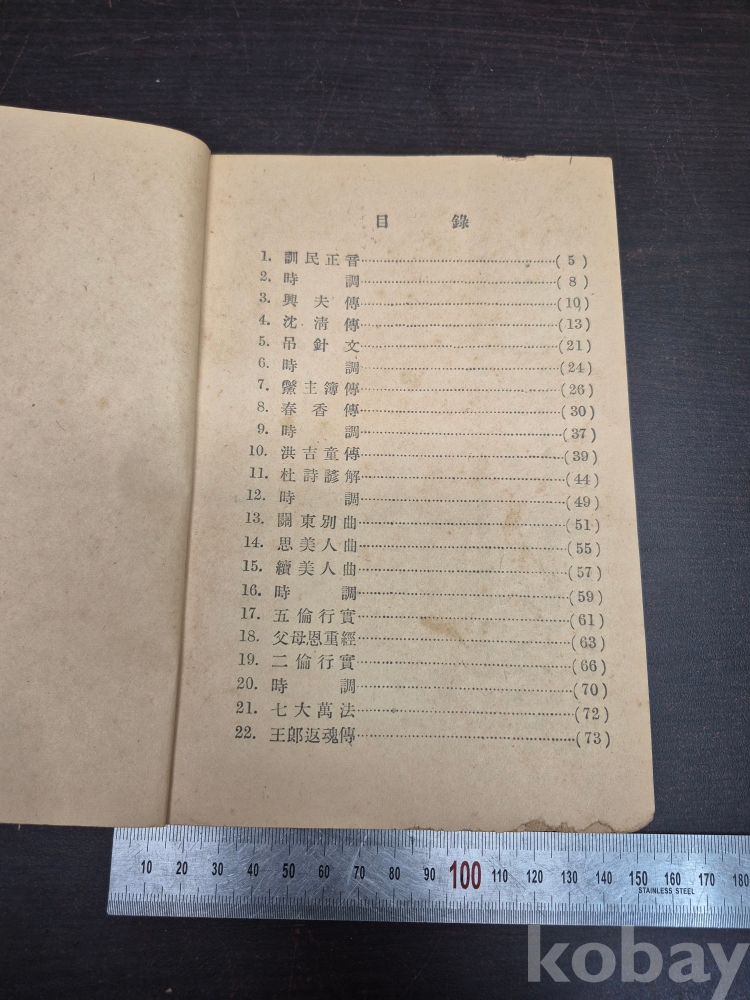 目 錄
1. 訓民正音(5)
2. 時調(8)
3. 興夫傳(10)
4. 沈淸傳(13)
5. 吊針文(21)
6. 時調(24)
7. 鱉主簿傳(26)
8. 春香傳(30)
9. 時調(37)
10. 洪吉童傳(39)
11. 杜詩諺解(44)
12. 時調(49)
13. 關東別曲(51)
14. 思美人曲(55)
15. 續美人曲(57)
16. 時調(59)
17. 五倫行實(61)
18. 父母恩重經(63)
19. 二倫行實(66)
20. 時調(70)
21. 七大萬法(72)
22. 王郎返魂傳(73)
10 20 30 40 50 60 70 80 90 100 110 120 130 140 150 160 170 180
STAINLESS STEEL
kobay